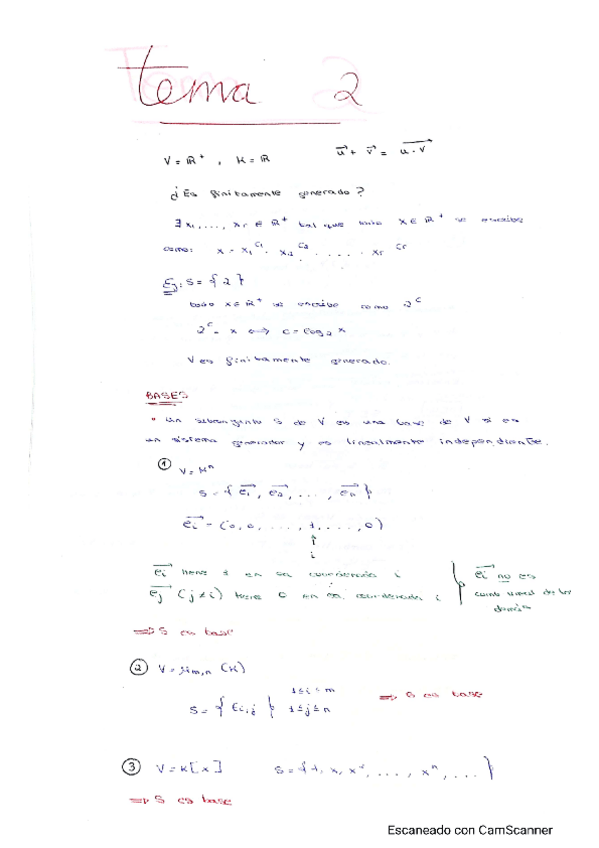 tema 2
V = ℝ⁺ , K = ℝ    u⃗ + v⃗ = u·v⃗
¿Es finitamente generado?
∃ x₁, ..., xᵣ ∈ ℝ⁺ tal que todo x ∈ ℝ⁺ se escribe
como: x = x₁^C₁ · x₂^C₂ · ... · xᵣ^Cᵣ
Ej: S = {2}
todo x ∈ ℝ⁺ se escribe como 2^c
2^c = x ⟺ c = log₂ x
V es finitamente generado.
BASES
• Un subconjunto S de V es una base de V si es
un sistema generador y es linealmente independiente.
① V = Kⁿ
S = {e₁⃗, e₂⃗, ..., eₙ⃗}
eᵢ⃗ = (0, 0, ..., 1, ..., 0)
↑
i
eᵢ⃗ tiene 1 en su coordenada i
eⱼ⃗ (j ≠ i) tiene 0 en su coordenada i
} eᵢ⃗ no es
comb lineal de los
demás
⟹ S es base
② V = Mm,n (K)
S = {Ei,j} 1≤i≤m 1≤j≤n ⟹ S es base
③ V = K[x]    S = {1, x, x², ..., xⁿ, ...}
⟹ S es base
Escaneado con CamScanner